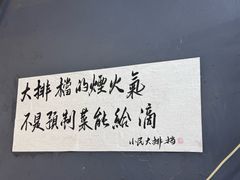 大排檔的煙火氣
不是預制菜能給滴
小民大排档